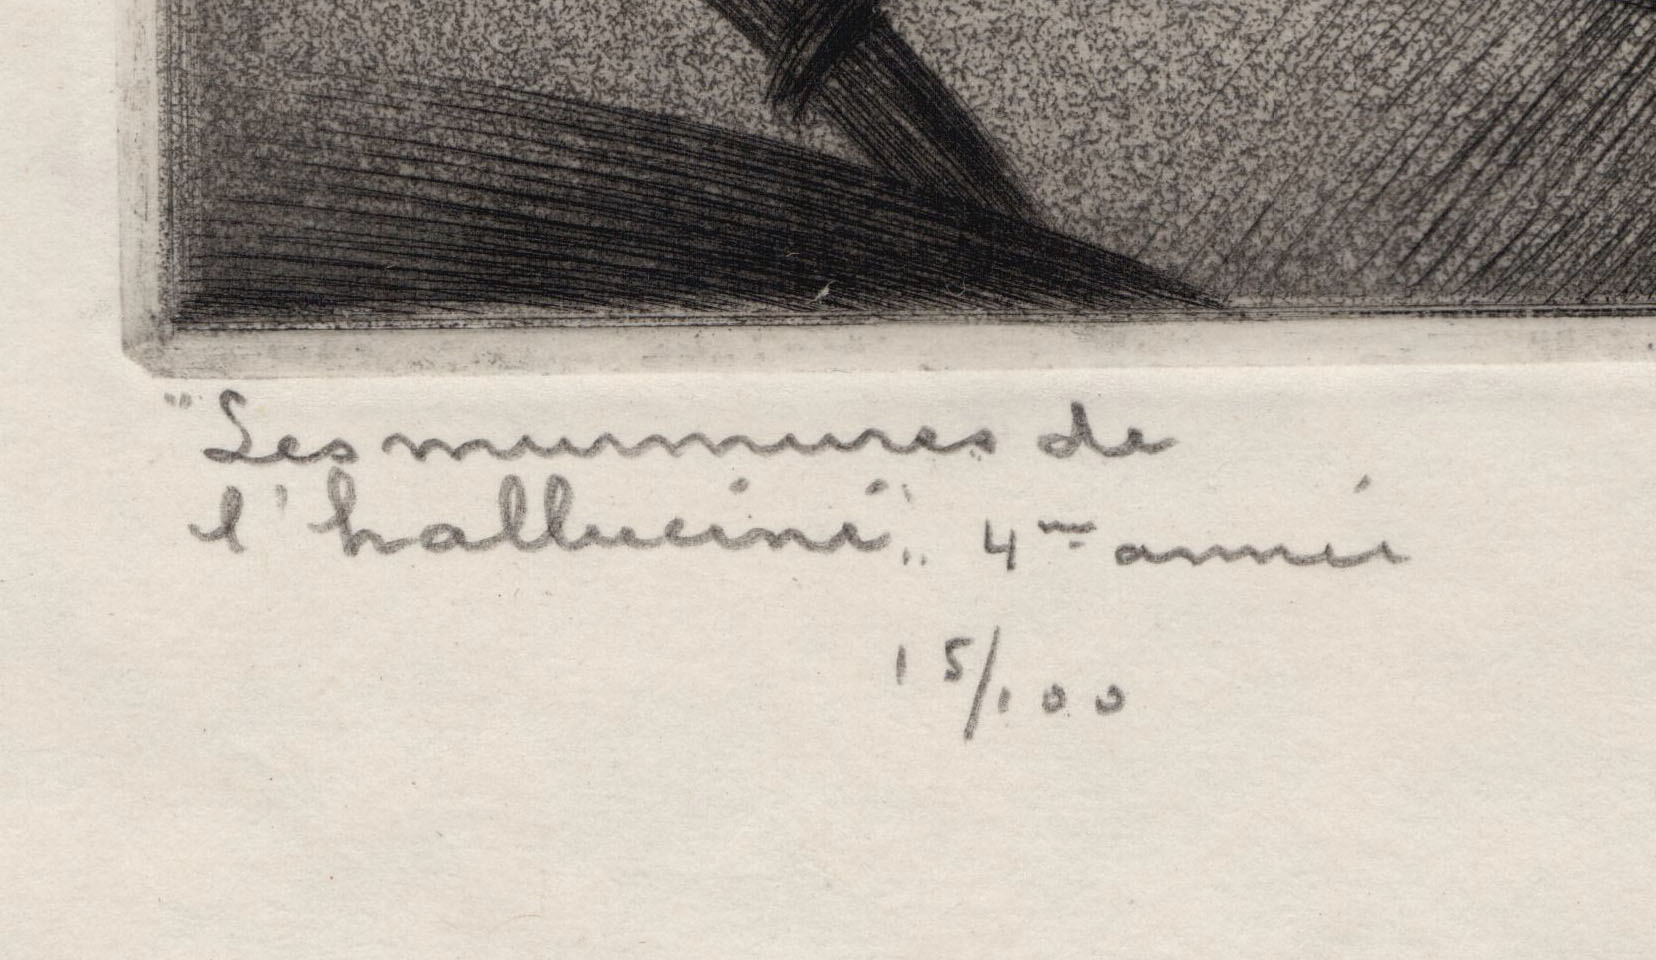 "Les murmures de
l'halluciné", 4me année
15/100